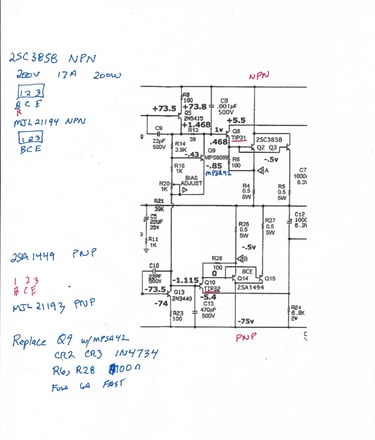 2SC3858 NPN
200V 17A 200W
1 2 3
B C E
MJL21194 NPN
1 2 3
B C E
2SA 1449 PNP
1 2 3
B C E
MJL21193 PNP
Replace Q9 w/MPSA42
CR2 CR3 1N4734
R6, R28 100Ω
Fuse 6A FAST
NPN
R8
100
+73.5
+73.8
Q5
2N5415
C8
.001µF
500V
+5.5
+1.468
R13
39
1v
Q8
TIP31
2SC3858
C9
22pF
500V
R14
3.9K
.468
Q2
Q3
-.43
Q9
MPS8099
R6
100
-.5v
-.85
MPSA42
C7
R15
1K
A
R20
1K
BIAS
ADJUST
R4
0.5
5W
R5
0.5
5W
R21
39
C5
22UF
35V
R26
0.5
5W
R27
0.5
5W
C12
R11
1K
-.5v
R28
B
C10
500V
100
0
BCE
-1.115
Q10
TIP32
Q14
Q15
-73.5
Q13
2N3440
-5.4
2SA1494
-74
C13
470pF
500V
R23
100
R24
6.8K
2W
-75v
PNP